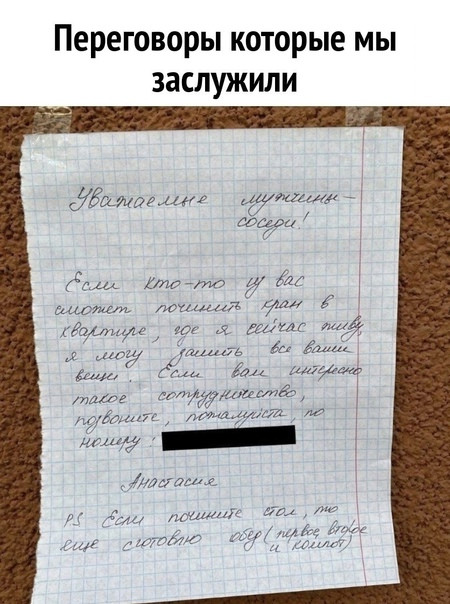 Переговоры которые мы
заслужили
Уважаемые мужчины –
соседи!
Если кто-то из вас
сможет починить кран в
квартире, где я сейчас живу,
я могу зашить все ваши
вещи. Если вам интересно
такое сотрудничество,
позвоните, пожалуйста, по
номеру:
Анастасия
PS Если почините стол, то
еще сготовлю обед (первое, второе
и компот)